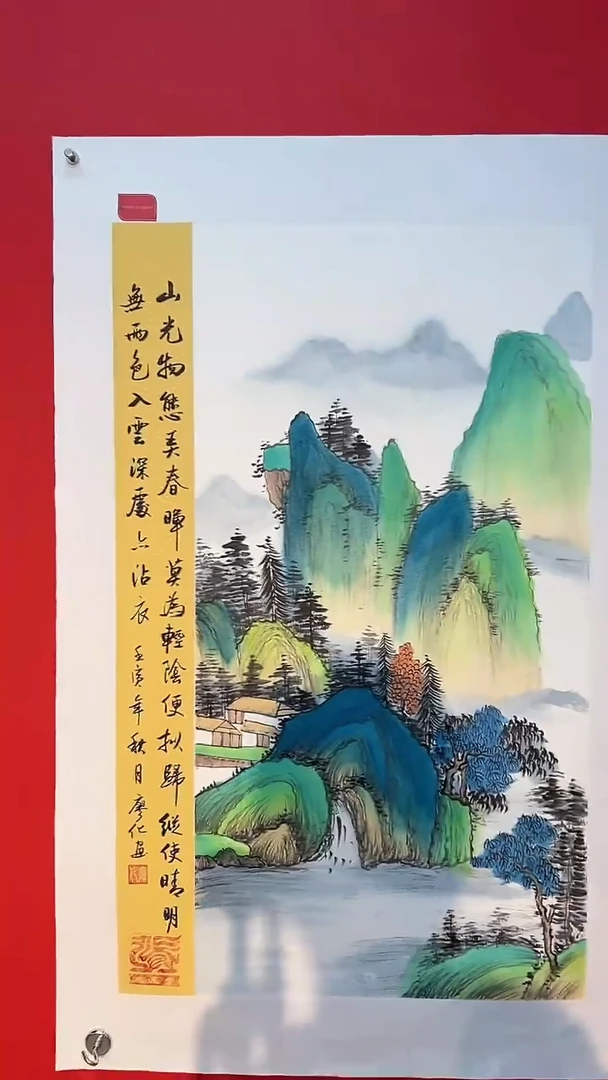 山光物態弄春暉莫為輕陰便拟歸縱使晴明
無雨色入雲深處亦沾衣 壬寅年秋月 廖化画